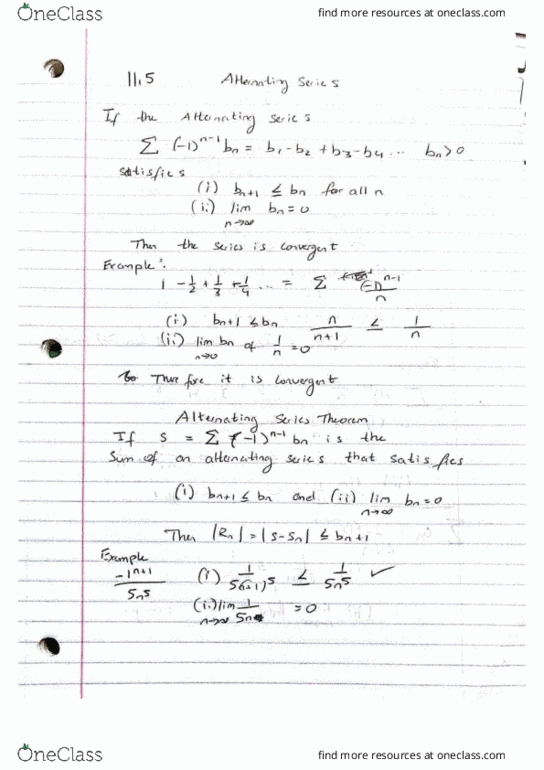 OneClass
find more resources at oneclass.com
11.5 Alternating Series
If the Alternating series
∑ (-1)^{n-1} bn = b1 - b2 + b3 - b4 ... bn > 0
satisfies
(i) bn+1 ≤ bn for all n
(ii) lim bn = 0
n→∞
Then the series is convergent
Example:
1 - 1/2 + 1/3 + 1/4 ... = ∑ (-1)^{n-1}/n
(i) bn+1 ≤ bn n/(n+1) ≤ 1/n
(ii) lim bn of 1/n = 0
n→0
Therefore it is convergent
Alternating Series Theorem
If S = ∑ (-1)^{n-1} bn is the
Sum of an alternating series that satisfies
(i) bn+1 ≤ bn and (ii) lim bn = 0
n→∞
Then |Rn| = |S - Sn| ≤ bn+1
Example
-1^{n+1}/5n^5 (i) 1/5(n+1)^5 ≤ 1/5n^5 ✓
(ii) lim 1/5n = 0
n→∞
OneClass
find more resources at oneclass.com